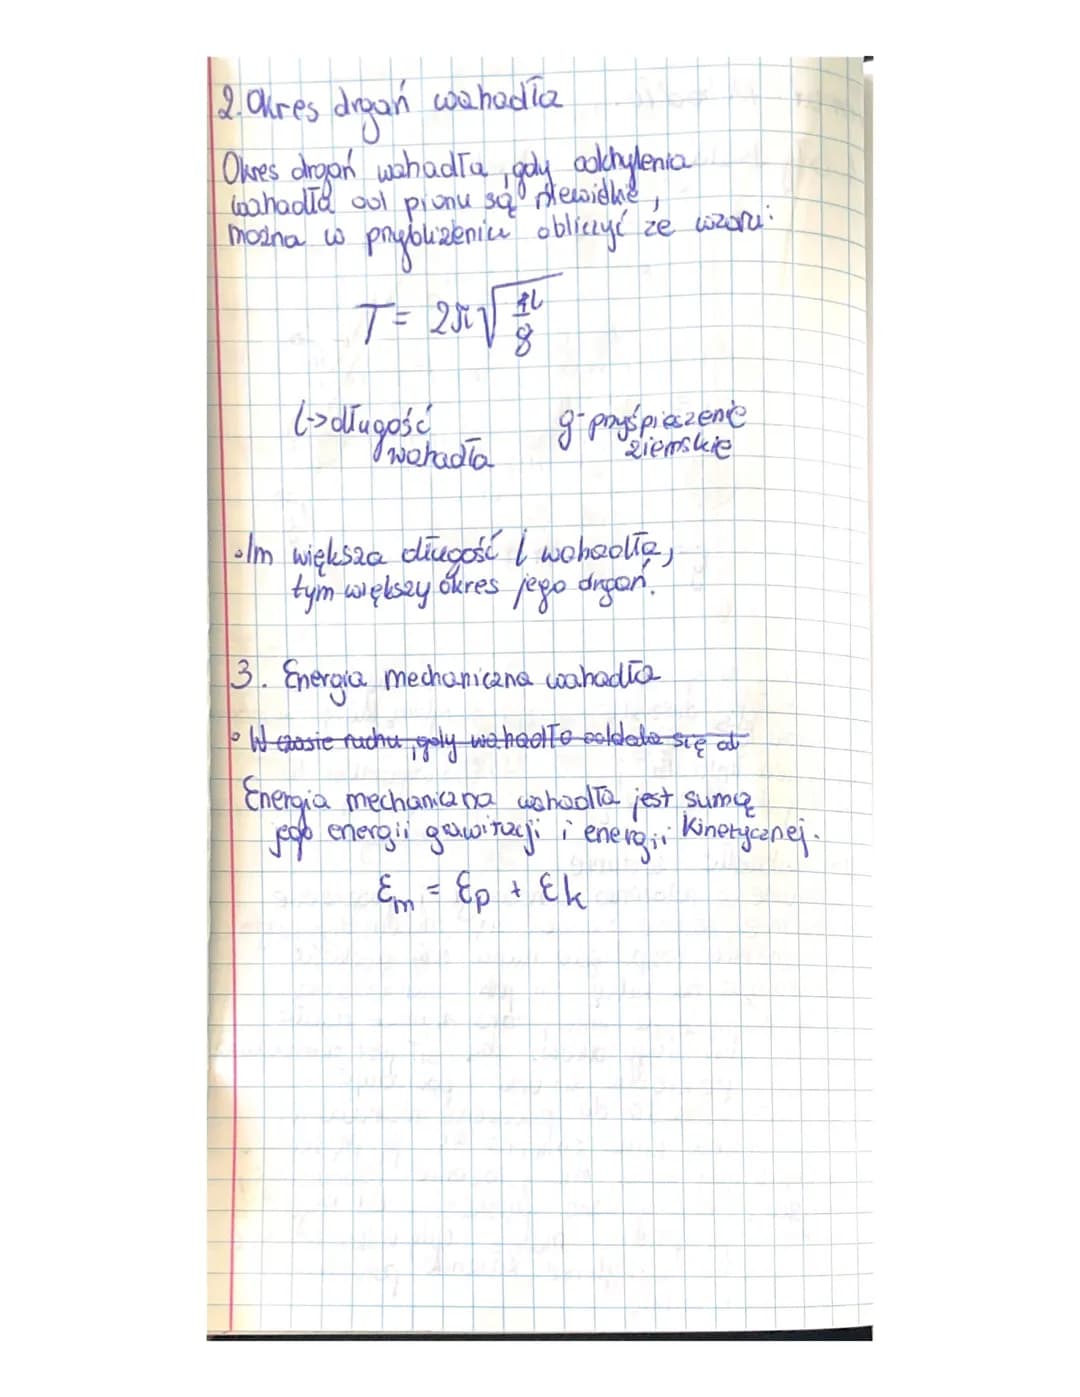 2. Okres drgań wahadła
Okres drgań wahadła, gdy odchylenia
wahadła od pionu są niewielkie,
można w przybliżeniu obliczyć ze wzoru:
T = 2π√(l/g)
l->długość
wahadła
g-przyśpieszenie
ziemskie
• Im większa długość l wahadła,
tym większy okres jego drgań.
3. Energia mechaniczna wahadła
• W czasie ruchu, gdy wahadło oddala się od
Energia mechaniczna wahadła jest sumą
jego energii grawitacji i energii kinetycznej.
Em = Ep + Ek